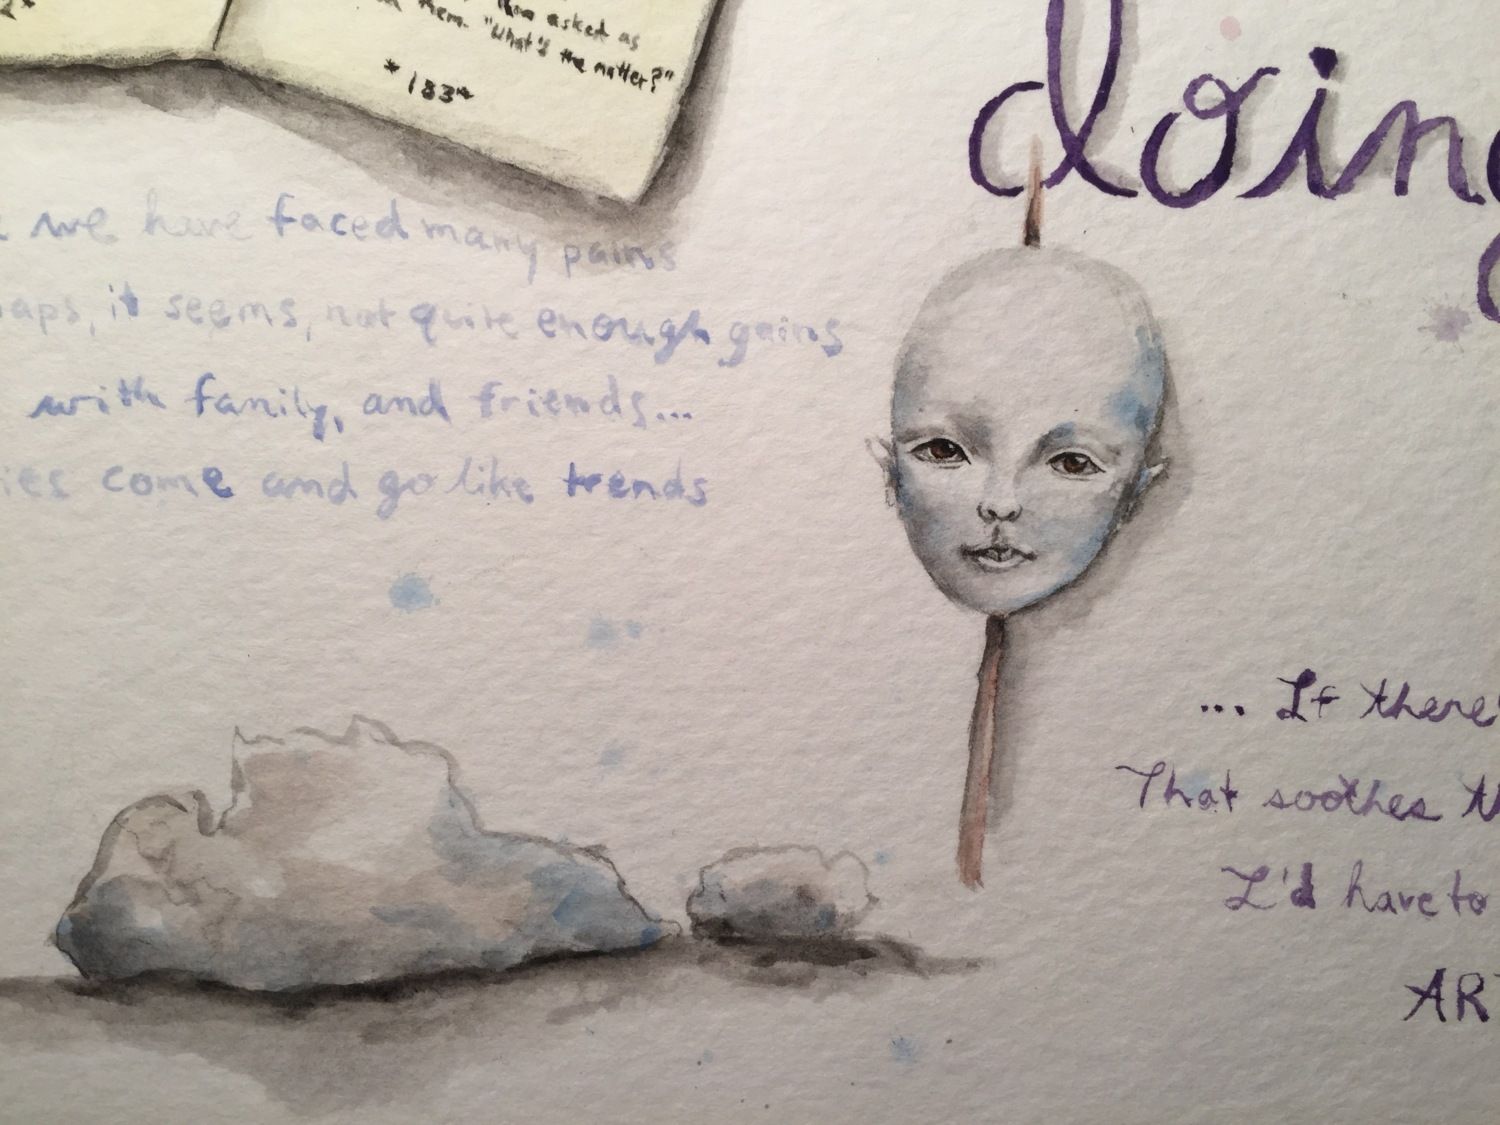 asked as
them. "What's the matter?"
*183*
doing
we have faced many pains
it seems, not quite enough gains
with family, and friends...
come and go like trends
... If there's
That soothes
I'd have to
ART